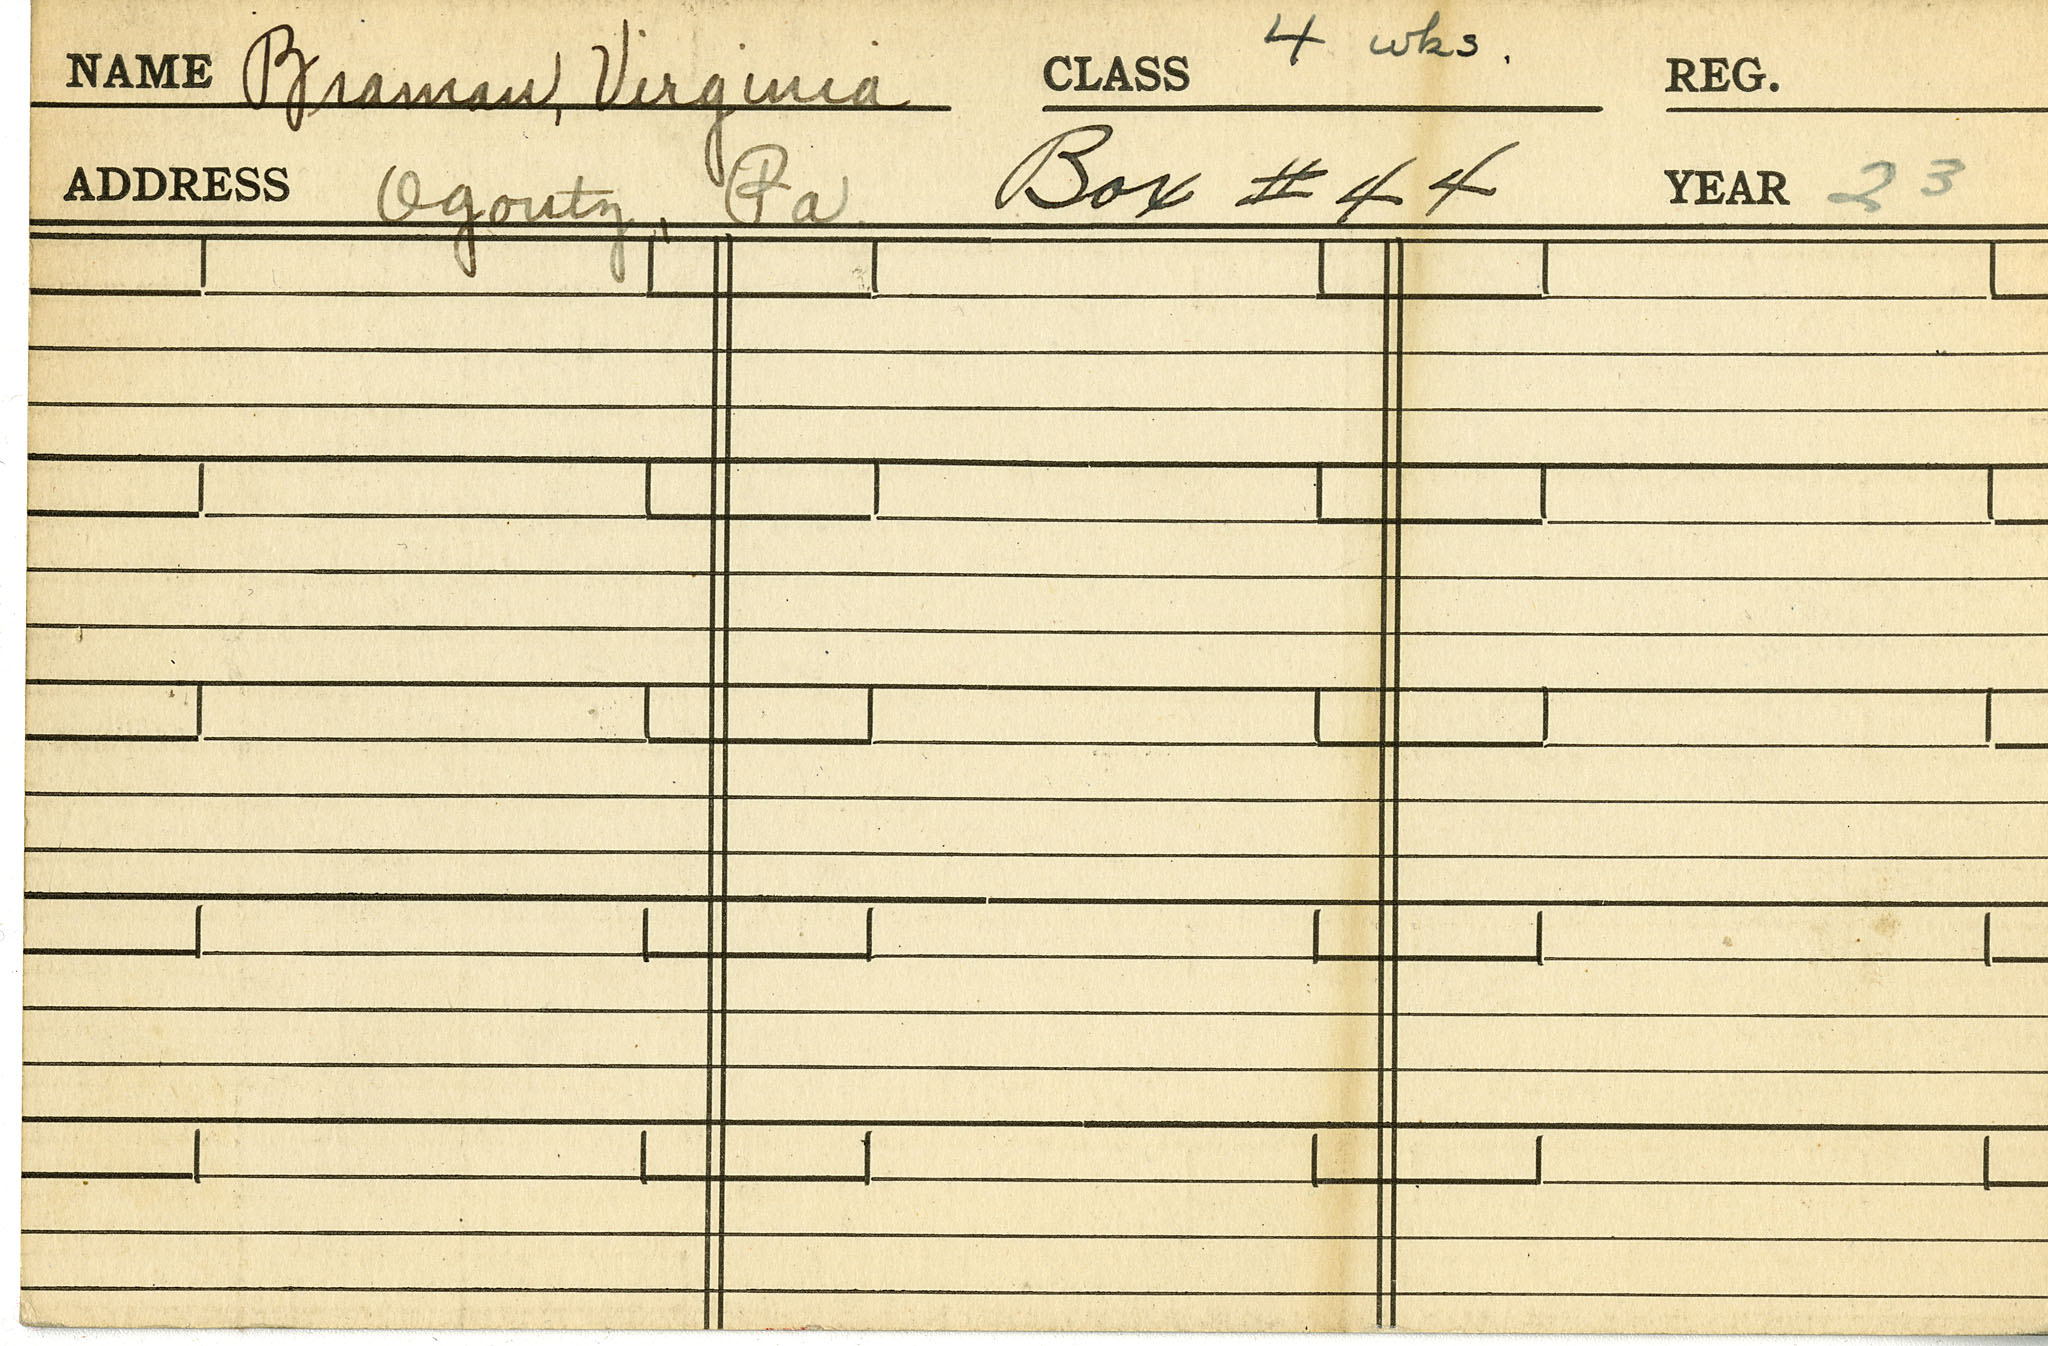 NAME Braman, Virginia CLASS 4 wks. REG.
ADDRESS Ogontz, Pa. Box # 44 YEAR 23